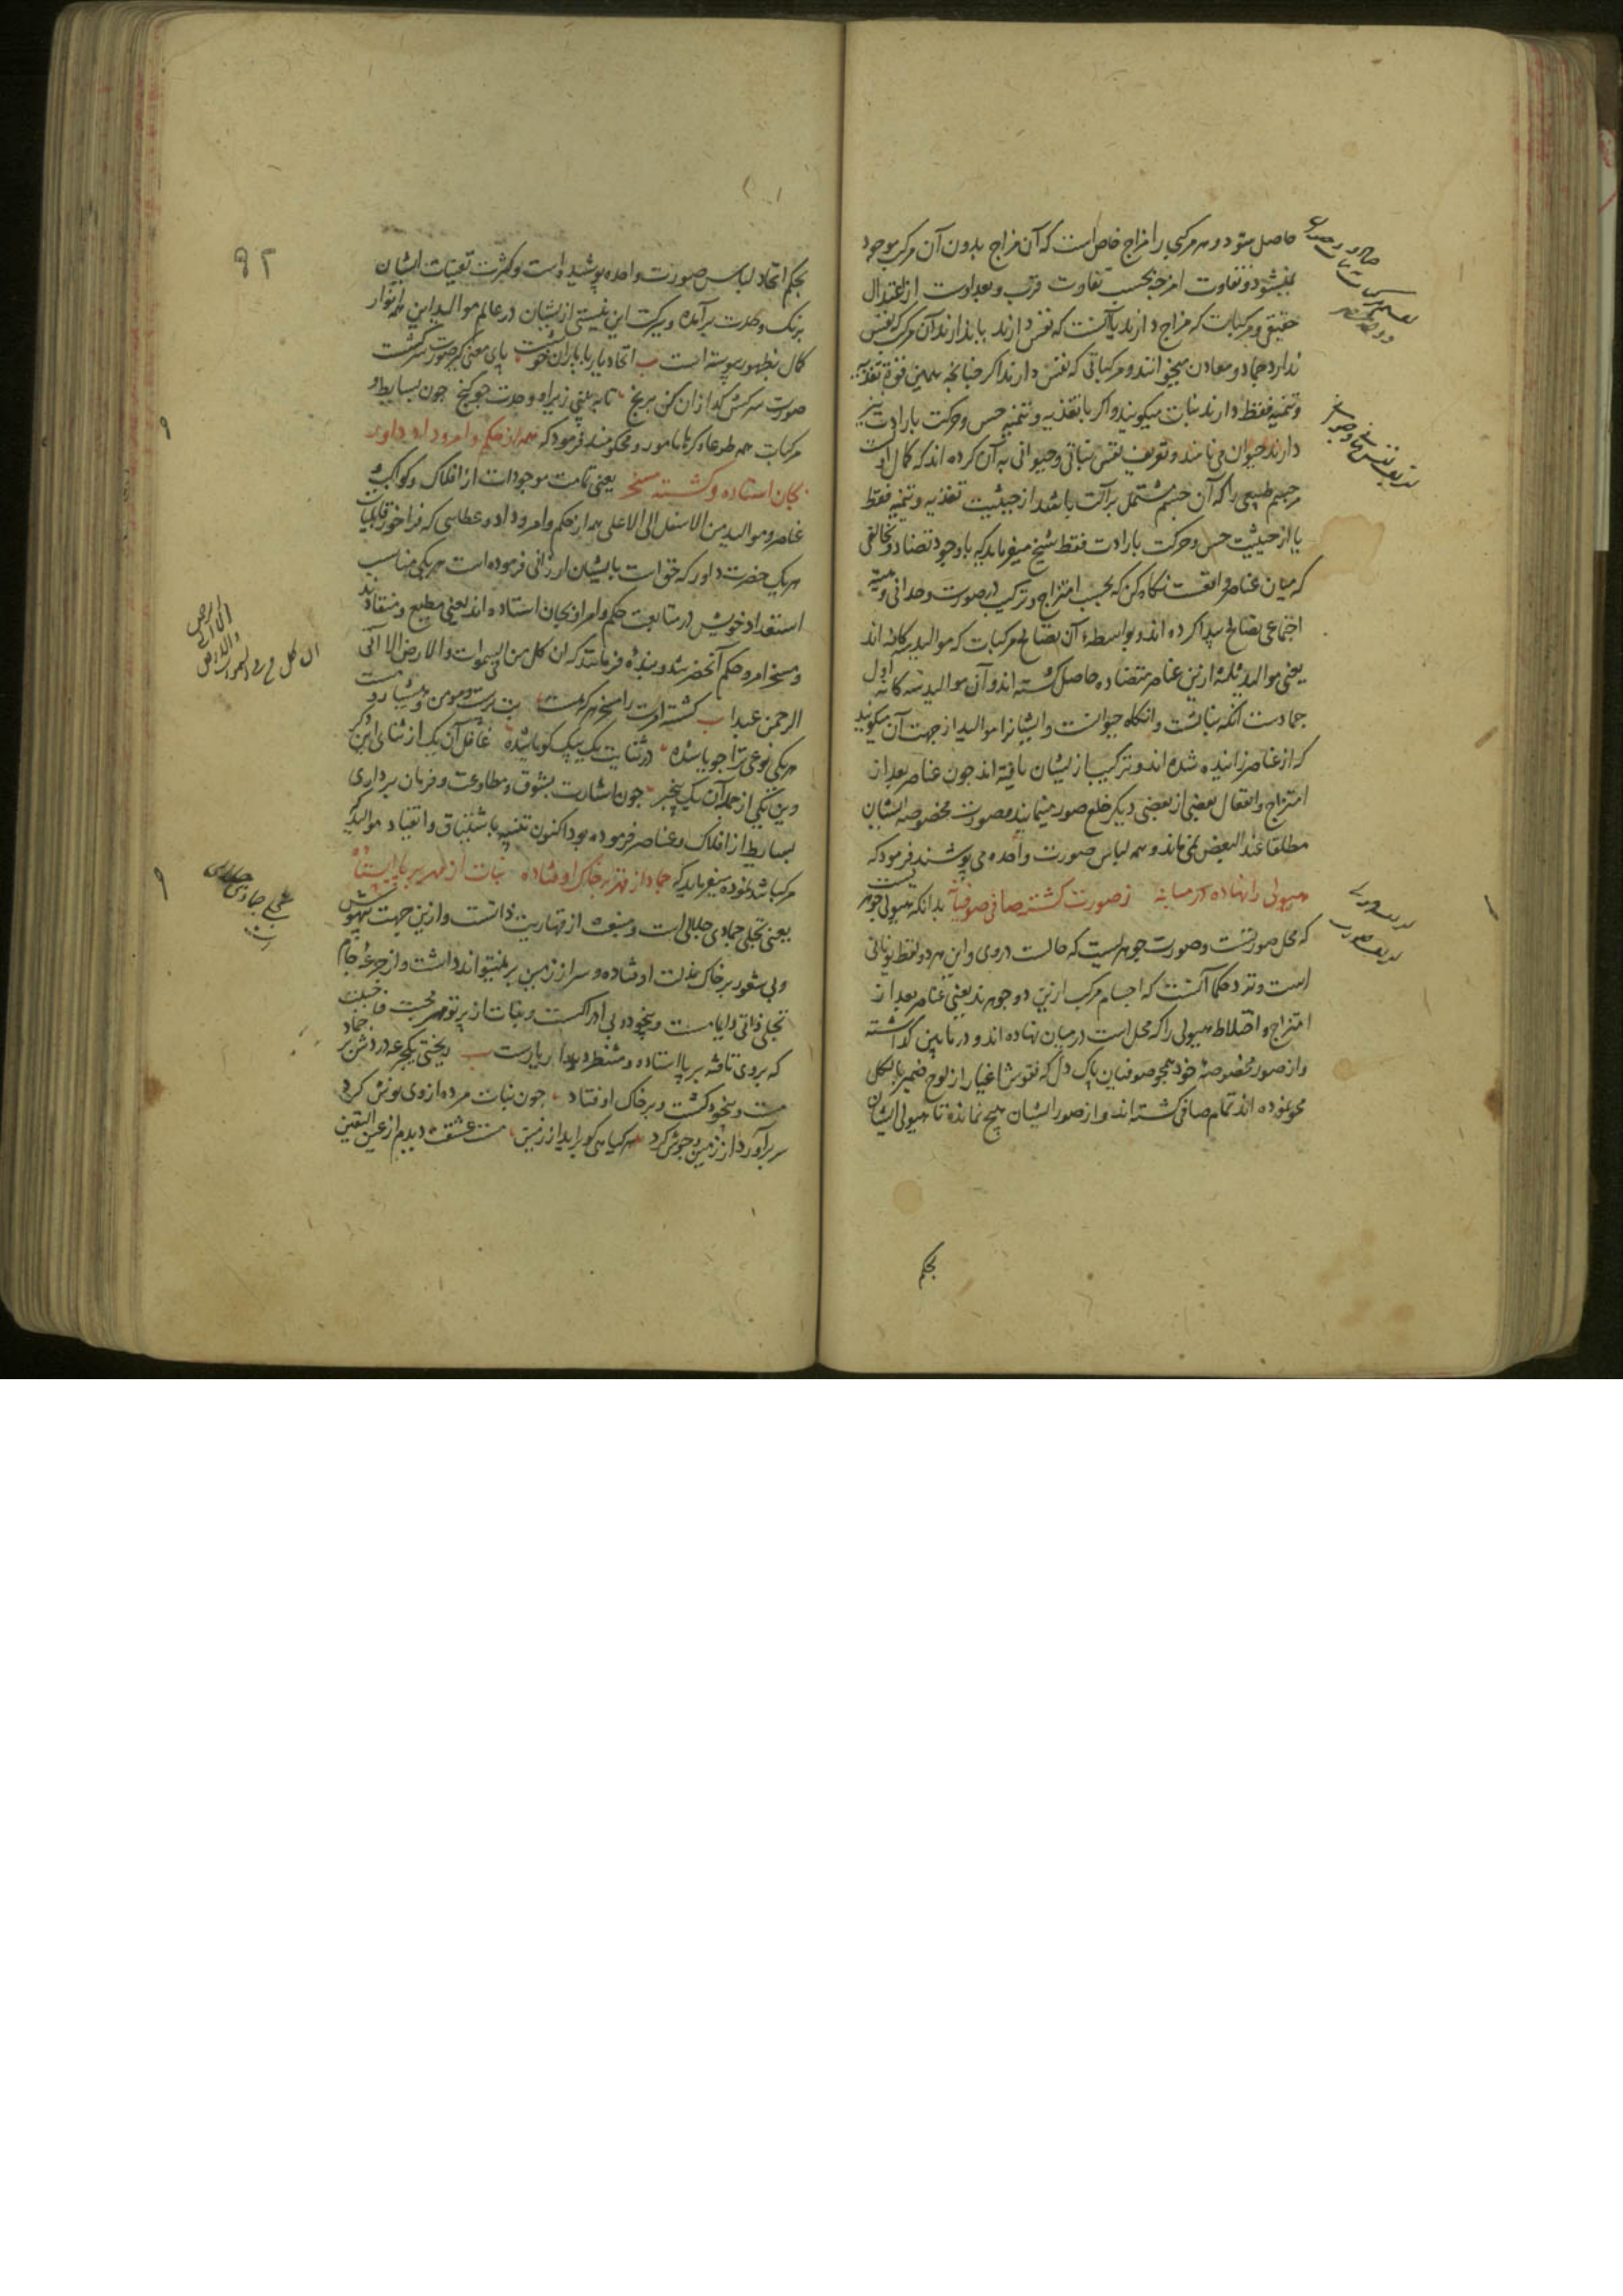 حاصل شود و هر مرکبی را مزاج خاص است که آن مزاج بدون آن مرکب موجود
نمیشود و تفاوت امزجه بحسب تفاوت قرب و بعد اوست از اعتدال
حقیقی و مرکبات که مزاج دارند یا آنست که نفس دارند یا ندارند آن مرکب که نفس
ندارد جماد و معادن میخوانند و مرکباتی که نفس دارند اگر چنانچه همین قوة تغذیه
و تنمیه فقط دارند نبات میکویند و اکر با تغذیه و تنمیه حس و حرکت بارادت نیز
دارند حیوان می نامند و تعریف نفس نباتی و حیوانی به آن کرده اند که کمال اول است
مر جسم طبیعی را که آن جسم مشتمل بر آلت باشد از حیثیت تغذیه و تنمیه فقط
یا از حیثیت حس و حرکت بارادت فقط شیخ میفرماید که با وجود تضاد و تخالفی
که میان عناصر واقعست نکاه کن که بحسب امتزاج و ترکیب در صورت وحدانی و هیئة
اجتماعی تصالح پیدا کرده اند و بواسطهٔ آن تصالح مرکبات که موالید سه کانه اند
یعنی موالید ثلثه ازین عناصر متضاده حاصل کشته اند و آن موالید سه کانه اول
جمادست انکه نباتست و انکاه حیوانست و ایشانرا موالید از جهت آن میکویند
که از عناصر زائیده شده اند و ترکیب ازیشان یافته اند جون عناصر بعد از
امتزاج و انفعال بعضی از بعضی دیکر خلع صور مینمایند و صورت مخصوصه ایشان
مطلقا عند البعض نمی ماند و همه لباس صورت واحده می پوشند فرمود که
هیولی را نهاده در میانه ز صورت کشته صافی صوفیانه بدانکه هیولی جوهریست
که محل صورتست و صورت جوهریست که حالست در وی و این هر دو لفظ یونانی
است و نزد حکما آنست که اجسام مرکب ازین دو جوهرند یعنی عناصر بعد از
امتزاج و اختلاط هیولی را که محل است در میان نهاده اند و در مابین کذاشته
و از صور مخصوصهٔ خود همچو صوفیان پاک دل که نقوش اغیار از لوح ضمیر بالکل
محو نموده اند تمام صافی کشته اند و از صور ایشان هیچ نمانده تا هیولی ایشان
بحکم
۹۲
بحکم اتحاد لباس صورت واحده پوشیده است و کثرت تعینات ایشان
برنک وحدت برآمده و ببرکت این نیستی ازیشان در عالم موالید این همه انوار
کمال بظهور پیوسته است اتحاد یار با یاران خوشست پای معنی کیر صورت سرکشست
صورت سرکش کدازان کن برنج تا ببینی زیر او وحدت جو کنج جون بسایط و
مرکبات همه طوعا و کرها مامور و محکومند فرمود که همه از حکم و امر داد داور
بجان استاده و کشته مسخر یعنی تمامت موجودات از افلاک و کواکب و
عناصر و موالید من الاسفل الی الاعلی همه از حکم و امر و داد و عطایی که فراخور قابلیات
هریک حضرت داور که حق است بایشان ارزانی فرموده است هریکی مناسب
استعداد خویش در متابعت حکم و امر او بجان استاده اند یعنی مطیع و منقادند
و مسخر امر و حکم آنحضرت شده و بنده فرمانند که ان کل من السموات والارض الا آتی
الرحمن عبدا کشته امرت را مسخر هرکه هست بت پرست و مومن و هشیار و مست
هریکی نوعی ترا جویا شده در ثنایت یک بیک کویا شده غافل آن یک از ثنای این دکر
وین یکی از جمله آن یک بیخبر جون اشارت بشوق و مطاوعت و فرمان برداری
بسایط از افلاک و عناصر فرموده بود اکنون تنبیه باشتیاق و انقیاد موالید که
مرکباتند نموده میفرماید که جماد از قهر بر خاک اوفتاده نبات از مهر بر پا ایستاده
یعنی تجلی جمادی جلالی است و منبعث از قهاریت ذاتست و ازین جهت بیهوش
و بی شعور بر خاک مذلت اوفتاده و سر از زمین بر نمیتواند داشت و از جرعهٔ جام
تجلی ذاتی دایما مست و بیخود و بی ادراکست و نبات از پرتو مهر محبت
که بر وی تافته بر پا استاده و منتظر دیدار یارست ریختی یک جرعه دردش بر جماد
مست و بیخود کشت و بر خاک اوفتاد جون نبات مرده از وی نوش کرد
سر برآورد از زمین و جوش کرد هر کیاهی کو برآید از زمین مست عشقت دیدم از عین الیقین